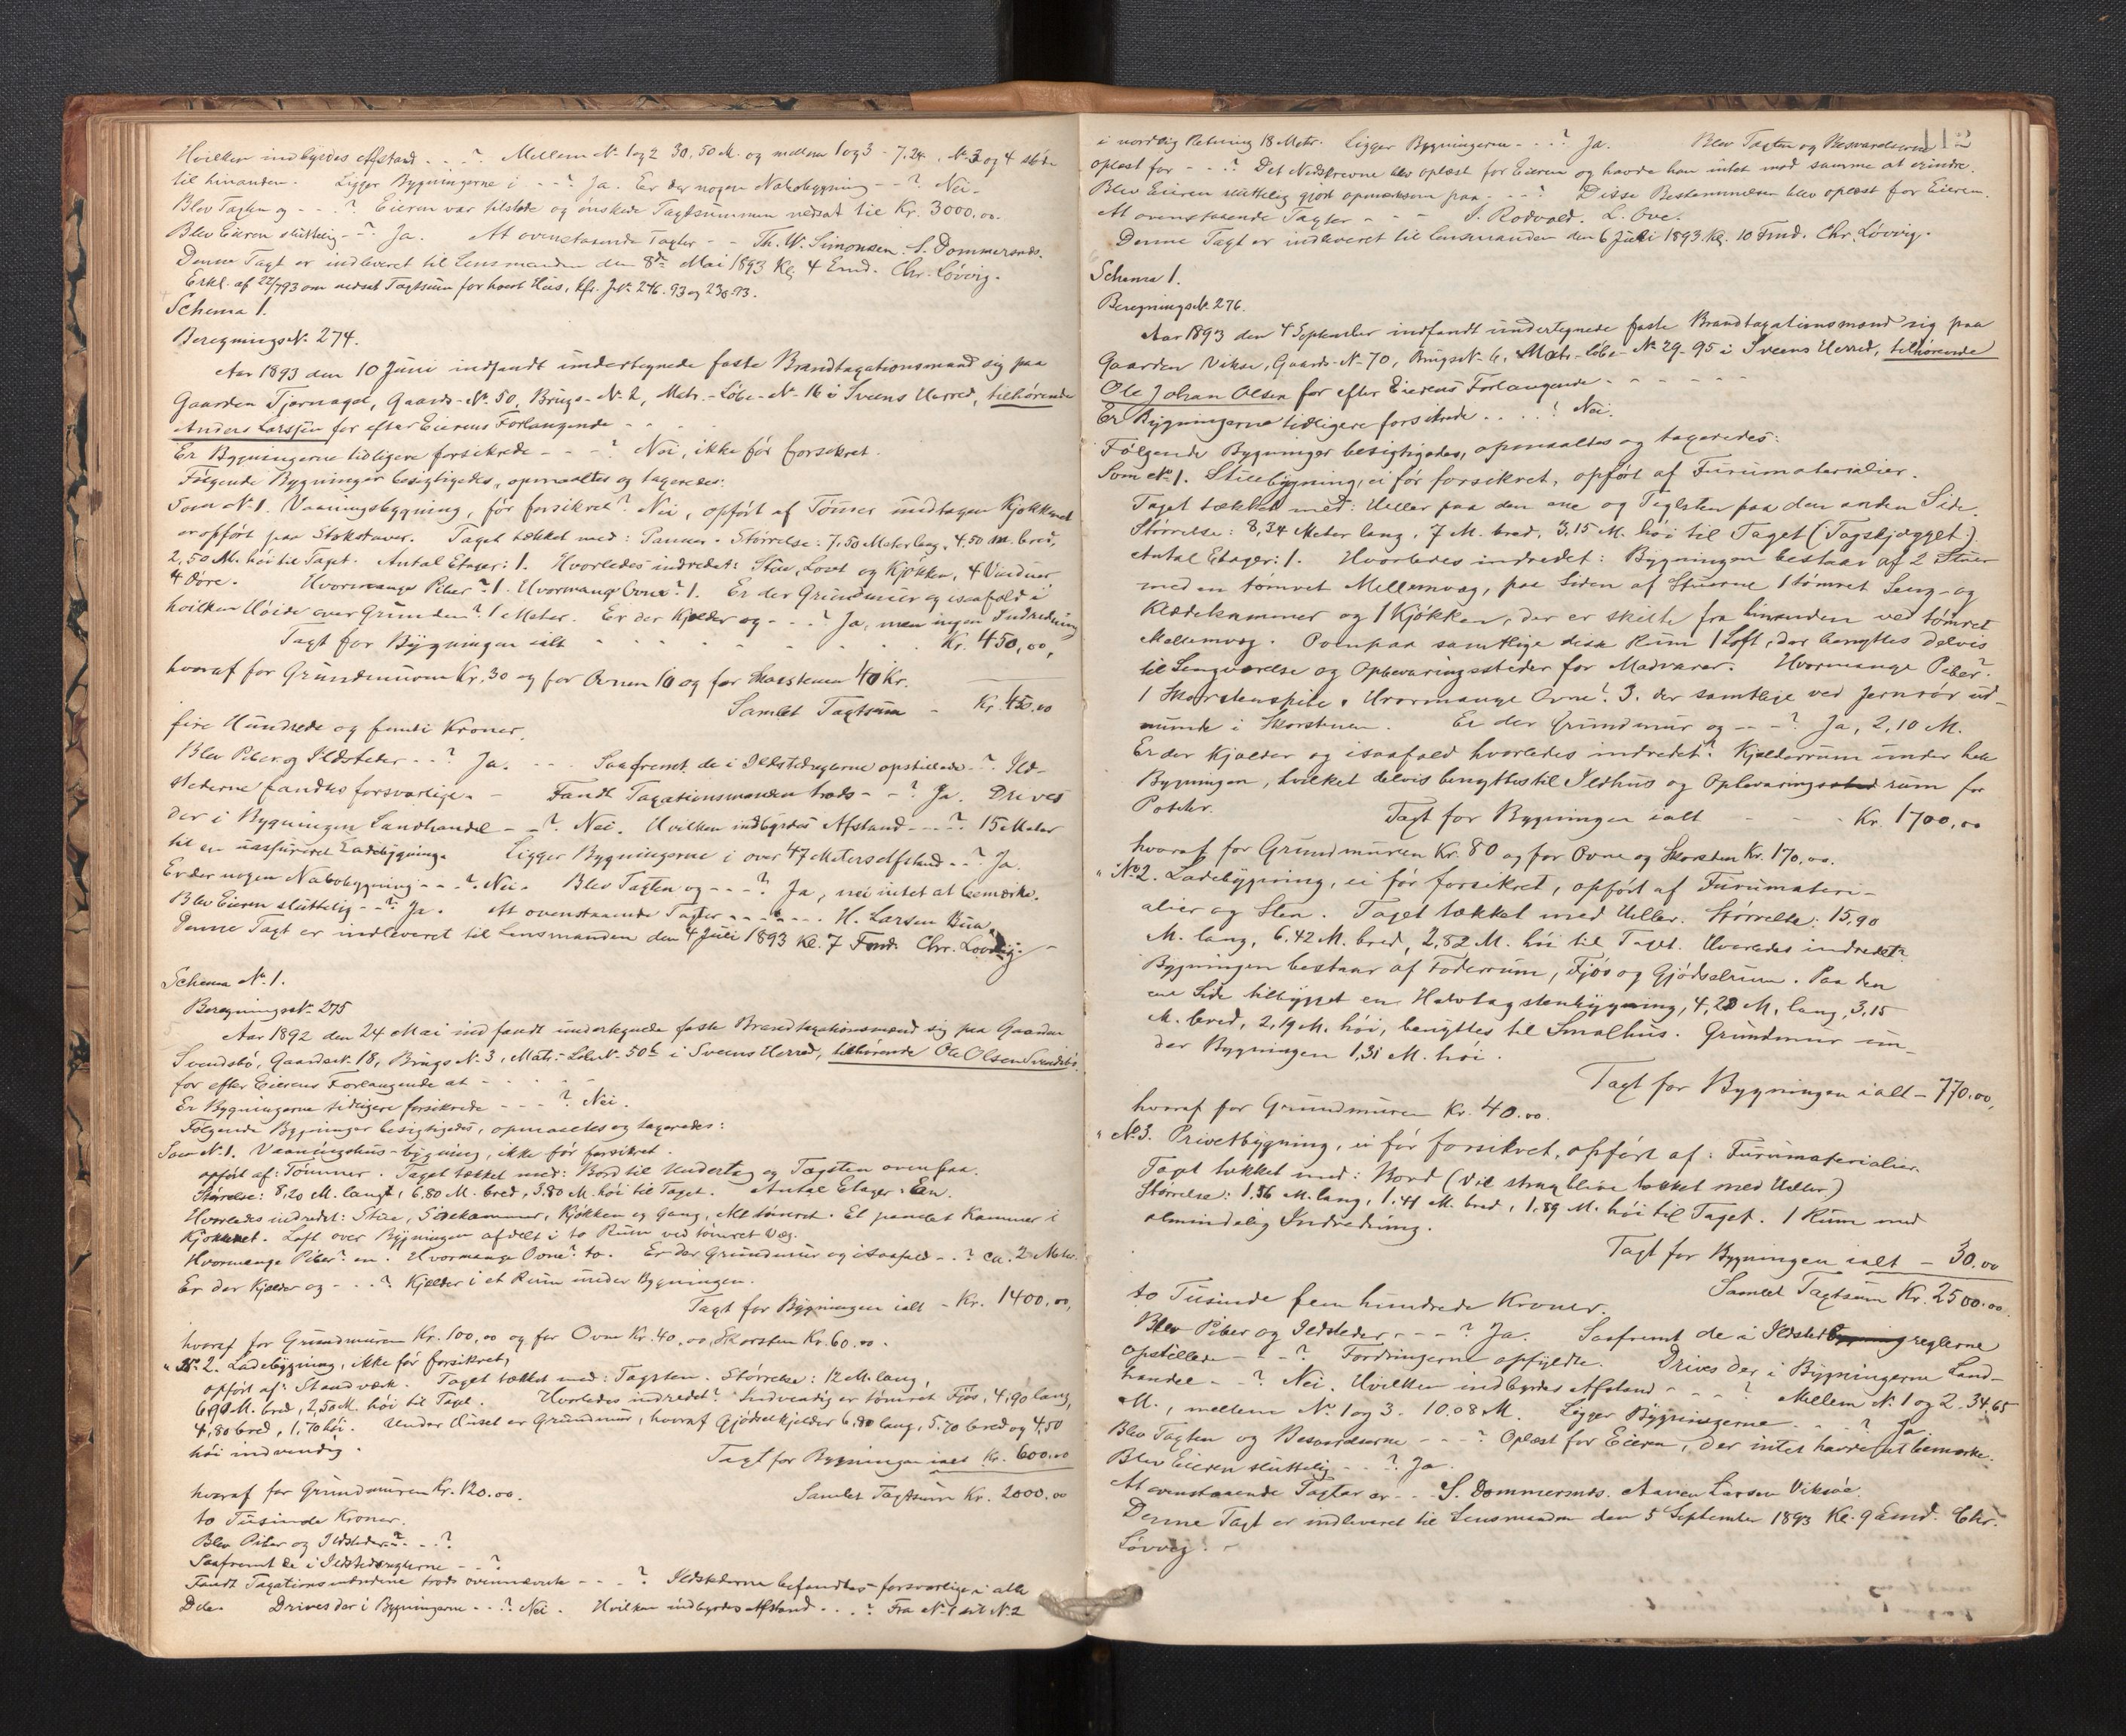 Hvilken indbyrdes Afstand - - -? Mellem No 1 og 2 30,50 M. og mellem 1 og 3 - 7,24, No 3 og 4 støder
til hinanden. Ligger Bygningerne i - - -? Ja. Er der nogen Nabobygning - -? Nei.
Blev Taxten og - - -? Eieren var tilstede og ønskede Taxtsummen nedsat til Kr. 3000,00.
Blev Eieren sluttelig - -? Ja. At ovenstaaende Taxter - - Th. W. Simonsen. S. Dommersnæs.
Denne Taxt er indleveret til Lensmanden den 8de Mai 1893 Kl 4 Emd. Chr. Løvvig.
Erkl. af 22/7 93 om nedsat Taxtsum for hvert Hus, kfr. J.No 246.93 og 230.93.
Schema 1.
Beregnings No. 274.
Aar 1893 den 10 Juni indfandt undertegnede faste Brandtaxationsmænd sig paa
Gaarden Tjernagel, Gaards-No. 50, Brugs-No. 2, Matr.-Løbe-No. 16 i Sveens Herred, tilhørende
Anders Larssen for efter Eierens Forlangende - - -
Er Bygningerne tidligere forsikrede - - -? Nei, ikke før forsikret.
Følgende Bygninger besigtigedes, opmaaltes og taxeredes:
Som No 1. Vaaningsbygning, før forsikret? Nei, opført af Tømmer undtagen Kjøkkenet
er opført paa Stokstaver. Taget tækket med: Panner. Størrelse: 7,50 Meter lang, 4,50 m. bred,
2,50 M. høi til Taget. Antal Etager: 1. Hvorledes indredet: Stue, Loset og Kjøkken, 4 Vinduer
4 Døre. Hvormange Piber? 1. Hvormange Ovne? 1. Er der Grundmur og isaafald i
hvilken Høide over Grunden? 1 Meter. Er der Kjelder og - - -? Ja, men ingen Indredning
Taxt for Bygningen ialt - - - - - Kr. 450,00,
hvoraf for Grundmuren Kr. 30 og for Ovnen 10 og for Skorstenen 40 Kr.
Samlet Taxtsum - Kr. 450.00
fire Hundrede og femti Kroner.
Blev Piber og Ildsteder - -? Ja. - - - Saafremt de i Ildstedreglerne opstillede -? Ild-
stederne fandtes forsvarlige. - Fandt Taxationsmænden trods - -? Ja. Drives
der i Bygningen Landhandel - -? Nei. Hvilken indbyrdes Afstand - - -? 15 Meter
til en uassureret Ladebygning. Ligger Bygningerne i over 47 Meters Afstand - -? Ja.
Er der nogen Nabobygning - - -? Nei. Blev Taxten og - - -? Ja, nei intet at bemærke.
Blev Eieren sluttelig - -? Ja. At ovenstaaende Taxter - - - - - H. Larsen Bua.
Denne Taxt er indleveret til Lensmanden den 4 Juli 1893 Kl. 7 Fmd. Chr. Løvvig.
Schema No. 1.
Beregnings No 275
Aar 1892 den 24 Mai indfandt undertegnede faste Brandtaxationsmænd sig paa Gaarden
Svendsbø, Gaards No. 18, Brugs No. 3, Matr.-Løbe No. 50b i Sveens Herred, tilhørende Ole Olsen Svendsbø.
for efter Eierens Forlangende at - - - - -
Er Bygningerne tidligere forsikrede - - -? Nei.
Følgende Bygninger besigtigedes, opmaaltes og taxeredes:
Som No 1. Vaaningshus-bygning, ikke før forsikret.
opført af: Tømmer. Taget tækket med: Bord til Undertag og Tagsten ovenpaa.
Størrelse: 8,20 M. langt, 6,80 M. bred, 3,80 M. høi til Taget. Antal Etager: En.
Hvorledes indredet: Stue, Sidekammer, Kjøkken og Gang, Alt tømret. Et panelet Kammer i
Kjøkkenet. Loft over Bygningen afdelt i to Rum ved tømret Væg.
Hvormange Piber? en. Hvormange Ovne? to. Er der Grundmur og isaafald - -? ca. 2 Meter.
Er der Kjælder og - - -? Kjælder i et Rum under Bygningen.
Taxt for Bygningen ialt - Kr. 1400,00,
hvoraf for Grundmuren Kr. 100,00 og for Ovne Kr. 40,00, Skorsten Kr. 60.00.
" No. 2. Ladebygning, ikke før forsikret,
opført af: Standværk. Taget tækket med: Tagsten. Størrelse: 12 M. lang,
6,90 M. bred, 2,50 M. høi til Taget. Hvorledes indredet? Indvendig er tømret Fjøs, 4,90 lang,
4,80 bred, 1,70 høi. Under Huset er Grundmur, hvoraf Gjødselkjelder 6,80 lang, 5,70 bred og 4,50
høi indvendig. Taxt for Bygningen ialt Kr. 600.00
hvoraf for Grundmuren Kr. 120.00. Samlet Taxtsum Kr. 2000.00
to Tusinde Kroner.
Blev Piber og Ildsteder? - -?
Saafremt de i Ildstedsreglerne - -?
Fandt Taxationsmændene trods ovennævnte - - -? Ildstederne befandtes forsvarlige i alle
Dele. Drives der i Bygningerne - -? Nei. Hvilken indbyrdes Afstand - - -? Fra No 1 til No 2
112
i nordlig Retning 18 Metr. Ligger Bygningerne - - -? Ja. Blev Taxten og Besvarelserne
oplæst for - - -? Det Nedskrevne blev oplæst for Eieren og havde han intet mod samme at erindre.
Blev Eieren sluttelig gjort opmærksom paa - - -? Disse Bestemmelser blev oplæst for Eieren.
At ovenstaaende Taxter - - - S. Rødvold. L. Ove.
Denne Taxt er indleveret til Lensmanden den 6 Juli 1893 Kl. 10 Fmd. Chr. Løvvig.
Schema 1.
Beregnings No. 276.
Aar 1893 den 4 September indfandt undertegnede faste Brandtaxationsmænd sig paa
Gaarden Vikse, Gaards-No. 70, Brugs No. 6, Matr.-Løbe-No 29-95 i Sveens Herred, tilhørende
Ole Johan Olsen for efter Eierens Forlangende - - - - - -
Er Bygningerne tidligere forsikrede - - - -? Nei.
Følgende Bygninger besigtigedes, opmaaltes og taxeredes:
Som No 1. Stuebygning, ei før forsikret, opført af Furumaterialier.
Taget tækket med: Heller paa den ene og Teglsten paa den anden Side.
Størrelse: 8,34 Meter lang, 7 M. bred, 3,15 M. høi til Taget (Tagskjægget).
Antal Etager: 1. Hvorledes indredet: Bygningen bestaar af 2 Stuer
med en tømret Mellemvæg, paa Siden af Stuerne 1 tømret Seng- og
Klædekammer og 1 Kjøkken, der er skilte fra hinanden ved tømret
Mellemvæg. Ovenpaa samtlige disse Rum 1 Loft, der benyttes delvis
til Sengværelse og Opbevaringssteder for Madvarer. Hvormange Piber?
1 Skorstenspibe. Hvormange Ovne? 3. der samtlige ved Jernrør ud-
munde i Skorstenen. Er der Grundmur og - - -? Ja, 2,10 M.
Er der Kjælder og isaafald hvorledes indredet? Kjælderrum under hele
Bygningen, hvilket delvis benyttes til Ildhus og Opbevaringssted rum for
Poteter. Taxt for Bygningen ialt - - - Kr. 1700,00
hvoraf for Grundmuren Kr. 80 og for Ovne og Skorsten Kr. 170,00.
" No 2. Ladebygning, ei før forsikret, opført af Furumateri-
alier og Sten. Taget tækket med Heller. Størrelse: 15,90
M. lang, 6,42 M. bred, 2,82 M. høi til Taget. Hvorledes indredet?
Bygningen bestaar af Foderrum, Fjøs og Gjødselrum. Paa den
ene Side tilbygget en Halvtagstenbygning, 4,20 M. lang, 3,15
M. bred, 2,19 M. høi, benyttes til Smalhus. Grundmur un-
der Bygningen 1,31 M. høi.
Taxt for Bygningen ialt - 770.00,
hvoraf for Grundmuren Kr. 40.00.
" No 3. Privetbygning, ei før forsikret, opført af: Furumaterialier.
Taget tækket med: Bord (vil strax blive tækket med Heller)
Størrelse: 1,56 M. lang, 1.41 M. bred, 1,89 M. høi til Taget. 1 Rum med
almindelig Indredning.
Taxt for Bygningen ialt - 30.00
Samlet Taxtsum Kr. 2500.00
to Tusinde fem hundrede Kroner.
Blev Piber og Ildsteder - - -? Ja. Saafremt de i Ildstedreglerne
opstillede - - -? Fordringerne opfyldte. Drives der i Bygningerne Land-
handel - -? Nei. Hvilken indbyrdes Afstand - - - -? Mellem No 1 og 2 - 34.65
M., mellem No. 1 og 3. 10.08 M. Ligger Bygningerne - - -? Ja.
Blev Taxten og Besvarelserne - - -? Oplæst for Eieren, der intet havde at bemærke.
Blev Eieren sluttelig - - -? Ja.
At ovenstaaende Taxter er - - S. Dommersnæs. Aamen Larsen Viksøe.
Denne Taxt er indleveret til Lensmanden den 5 September 1893 Kl. 9 Emd. Chr.
Løvvig.